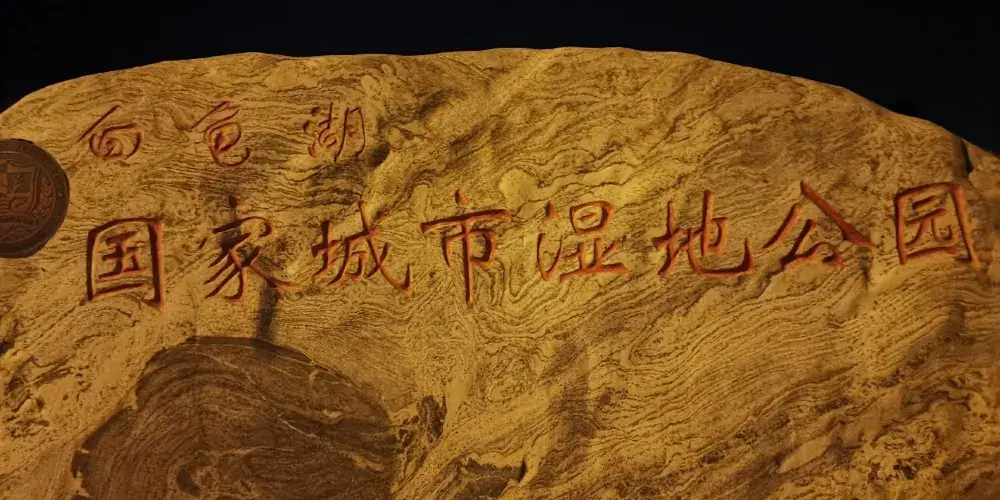 白龟湖
国家城市湿地公园